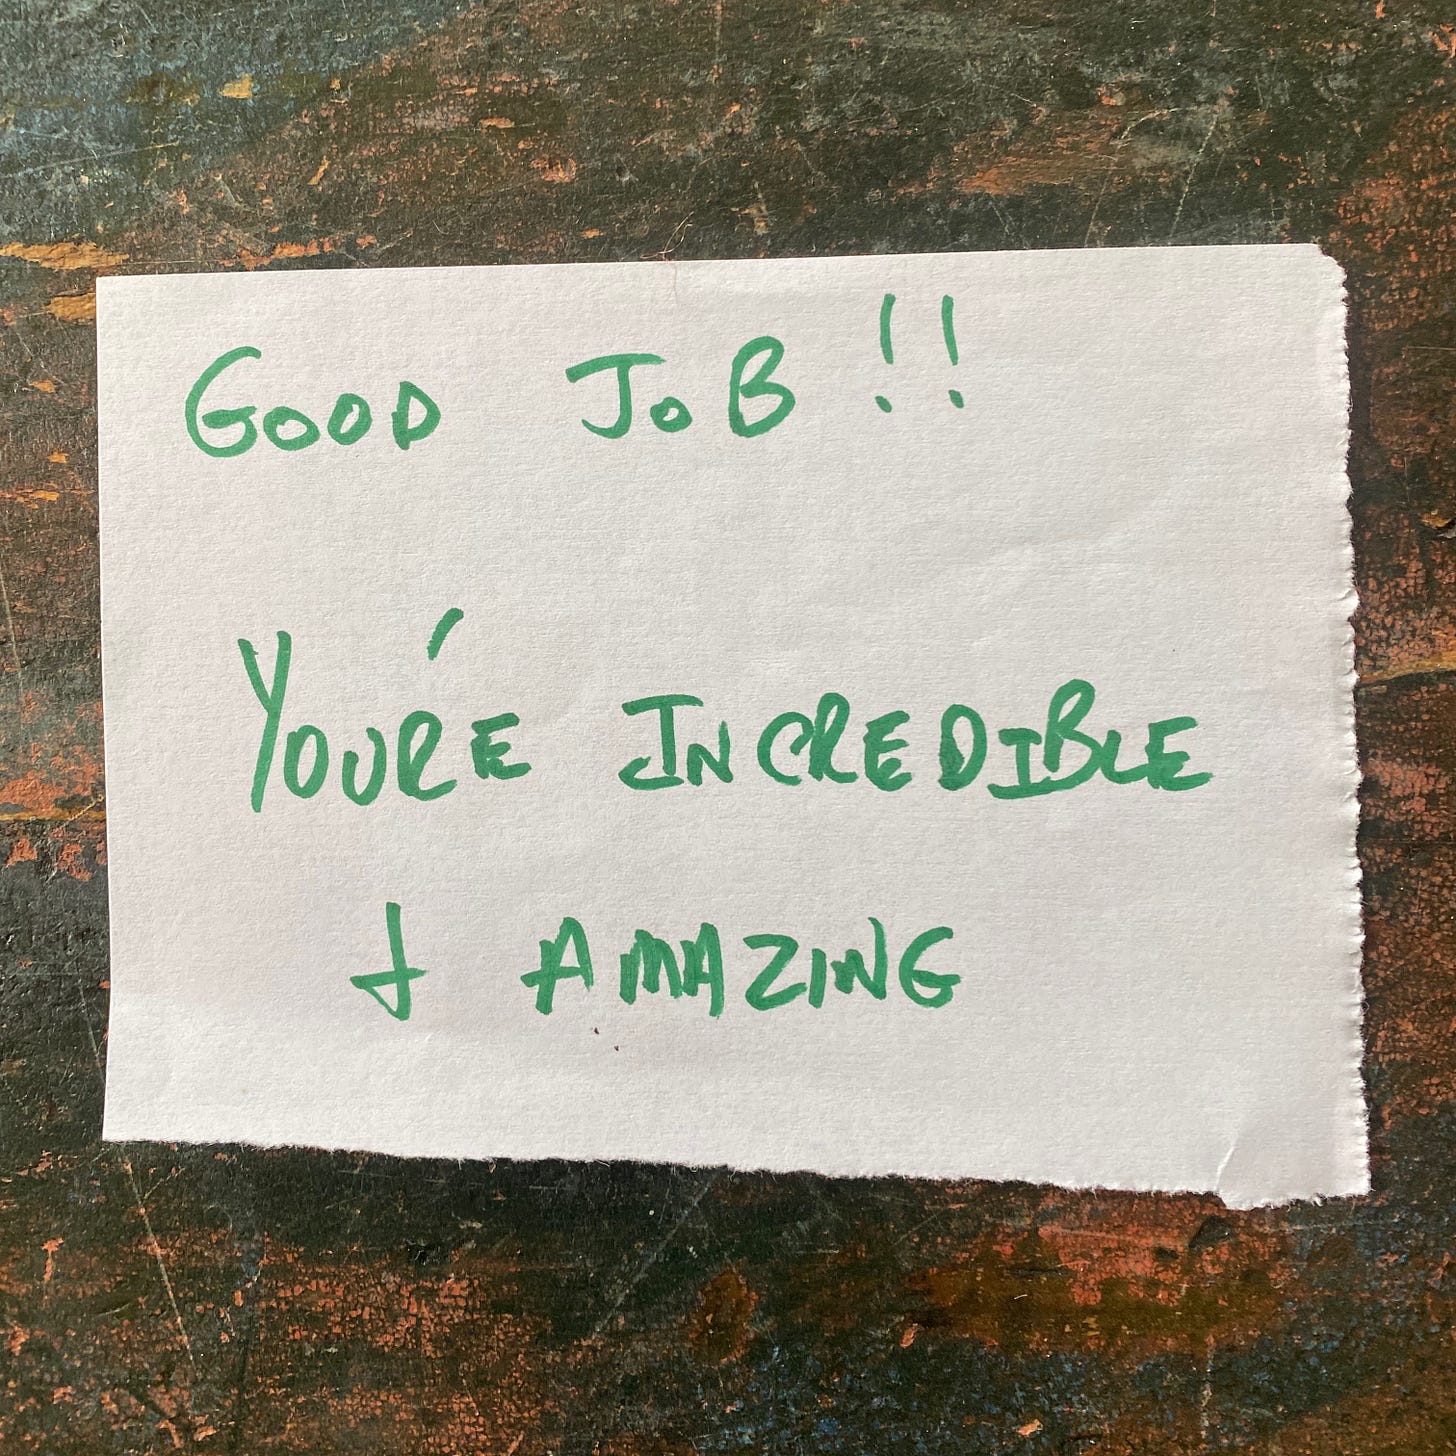 GOOD JOB!!
YOU'RE INCREDIBLE
+ AMAZING